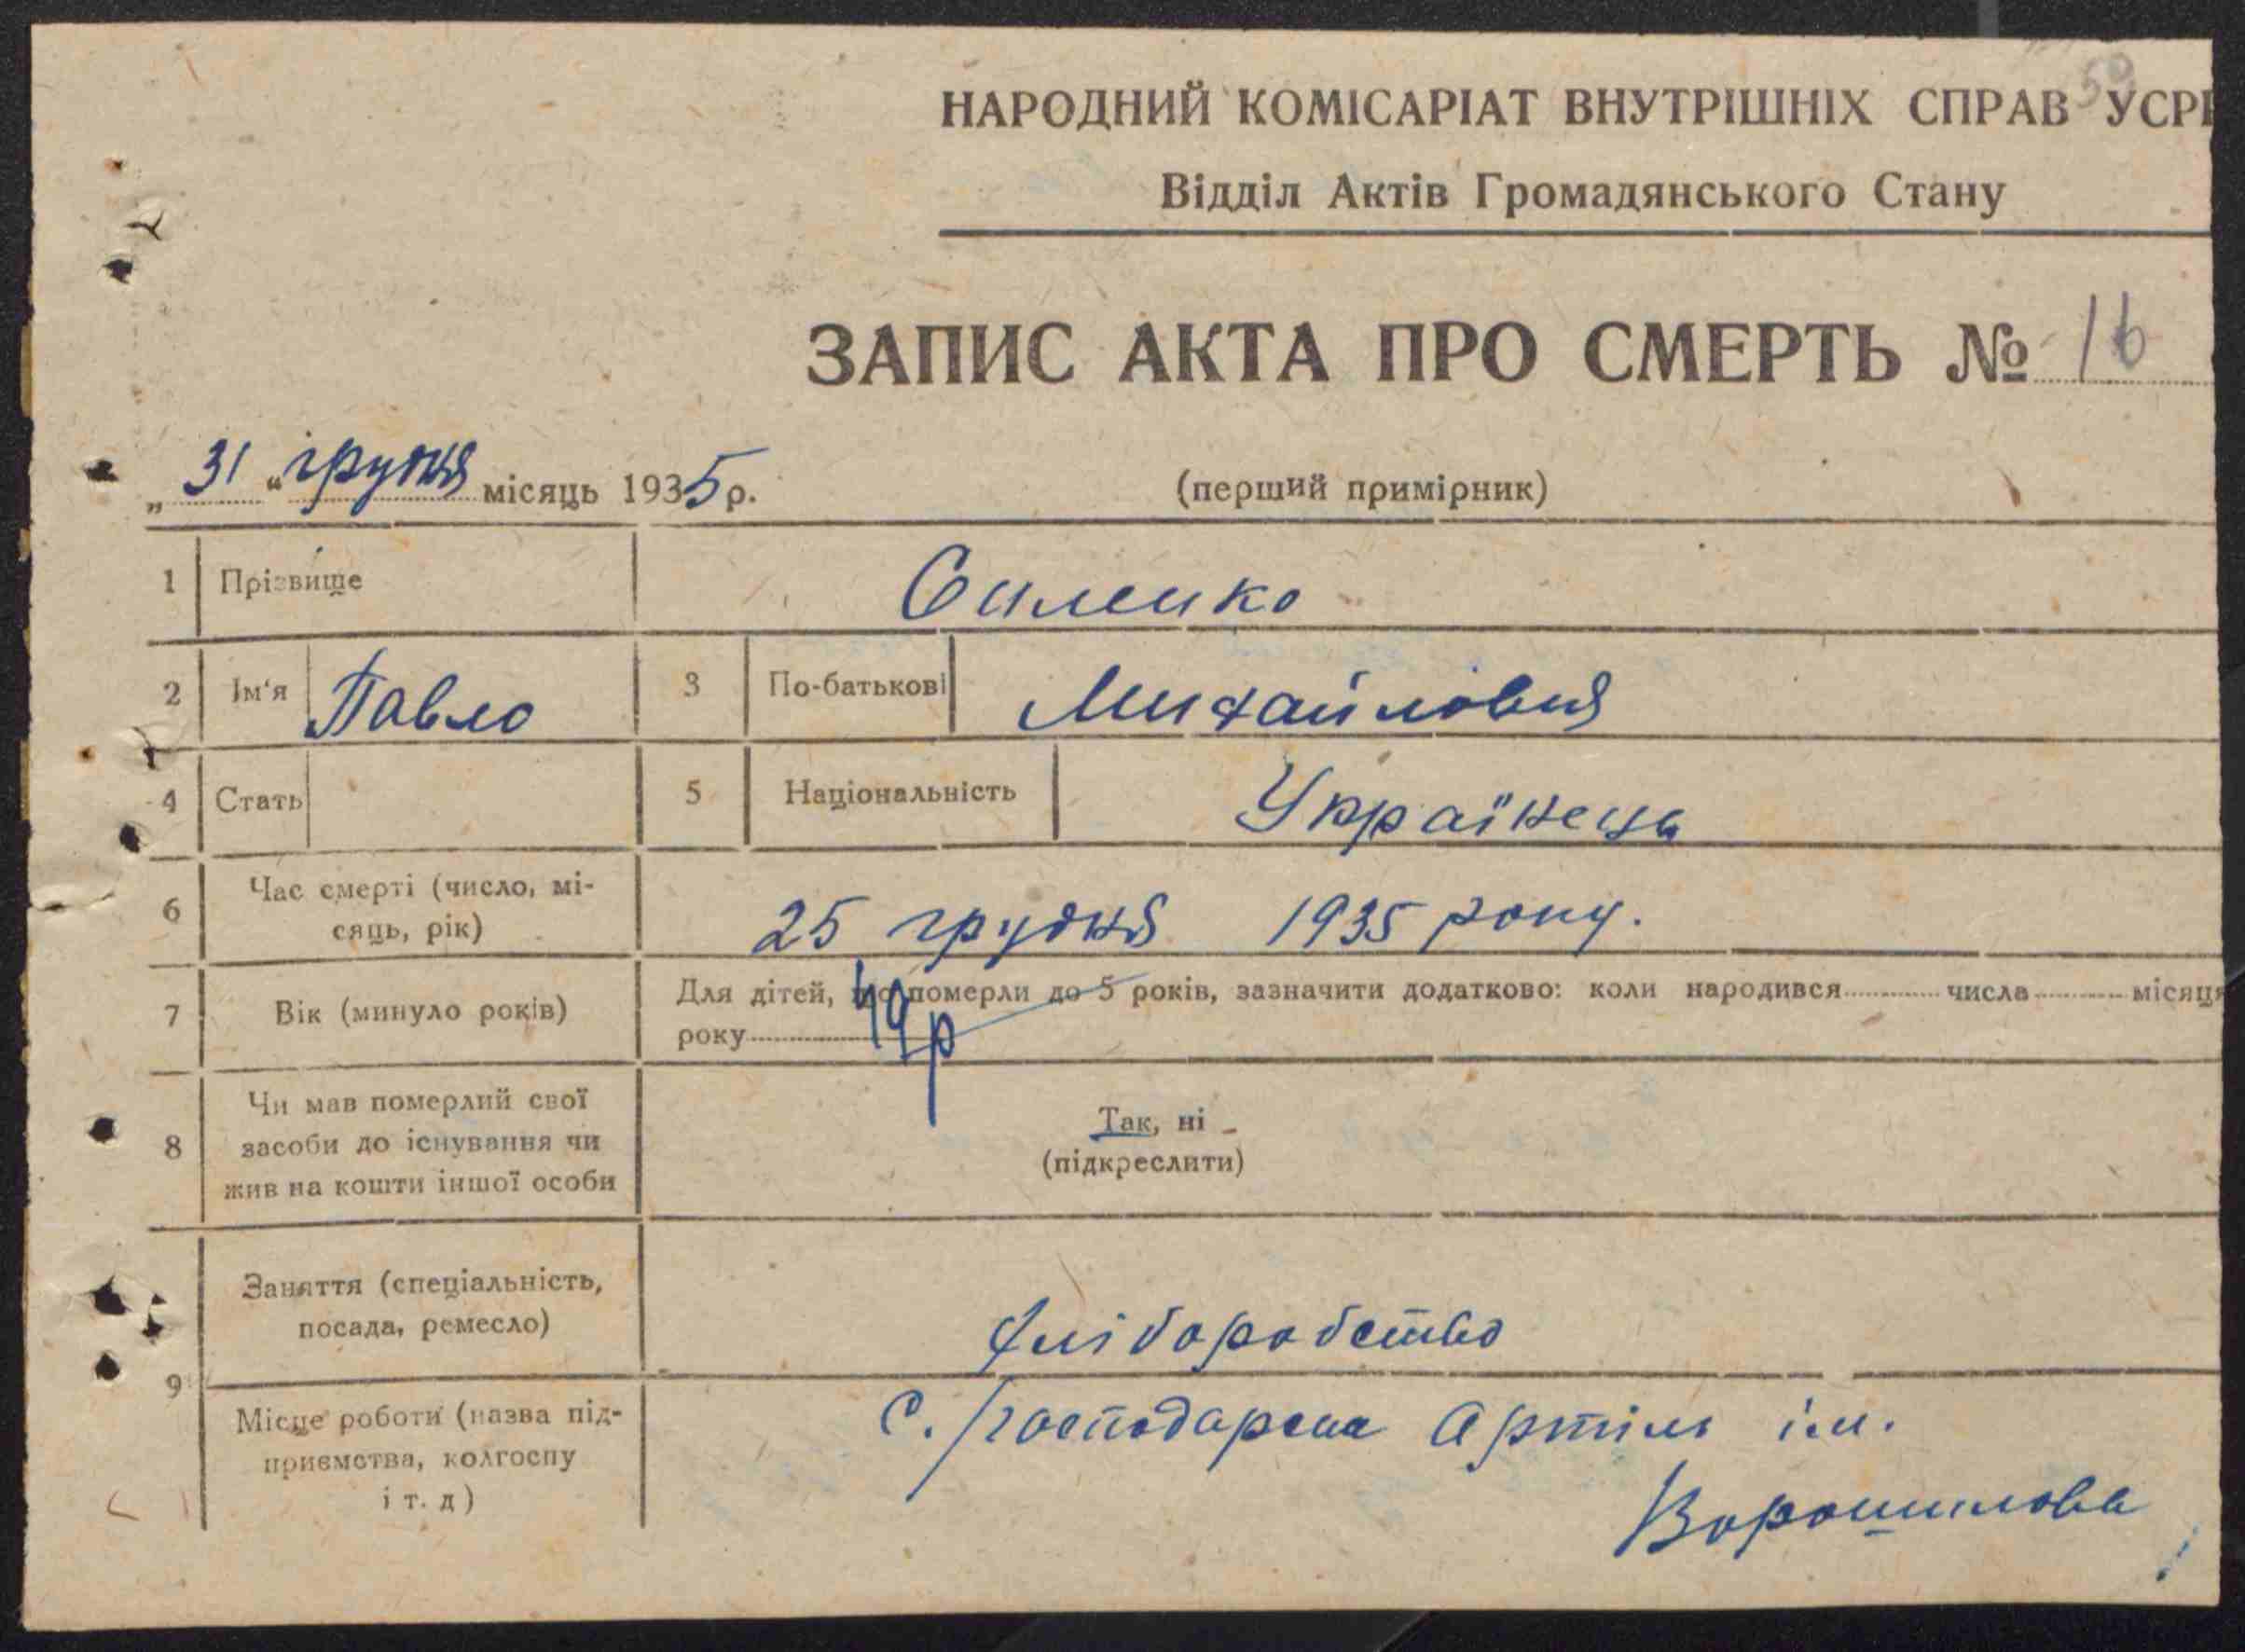 50
НАРОДНИЙ КОМІСАРІАТ ВНУТРІШНІХ СПРАВ УСРР
Відділ Актів Громадянського Стану
ЗАПИС АКТА ПРО СМЕРТЬ № 16
„ 31 “ грудня місяць 1935 р. (перший примірник)
1 Прізвище Силенко
2 Ім'я Павло 3 По-батькові Михайловия
4 Стать 5 Національність Українець
6 Час смерті (число, мі-
сяць, рік) 25 грудня 1935 року.
7 Вік (минуло років) Для дітей, що померли до 5 років, зазначити додатково: коли народився числа місяця
року 49 р
8 Чи мав померлий свої
засоби до існування чи
жив на кошти іншої особи
Так, ні
(підкреслити)
9 Заняття (спеціальність,
посада, ремесло) хліборобство
Місце роботи (назва під-
приємства, колгоспу
і т. д)
С. Господарська Артіль ім.
Ворошилова